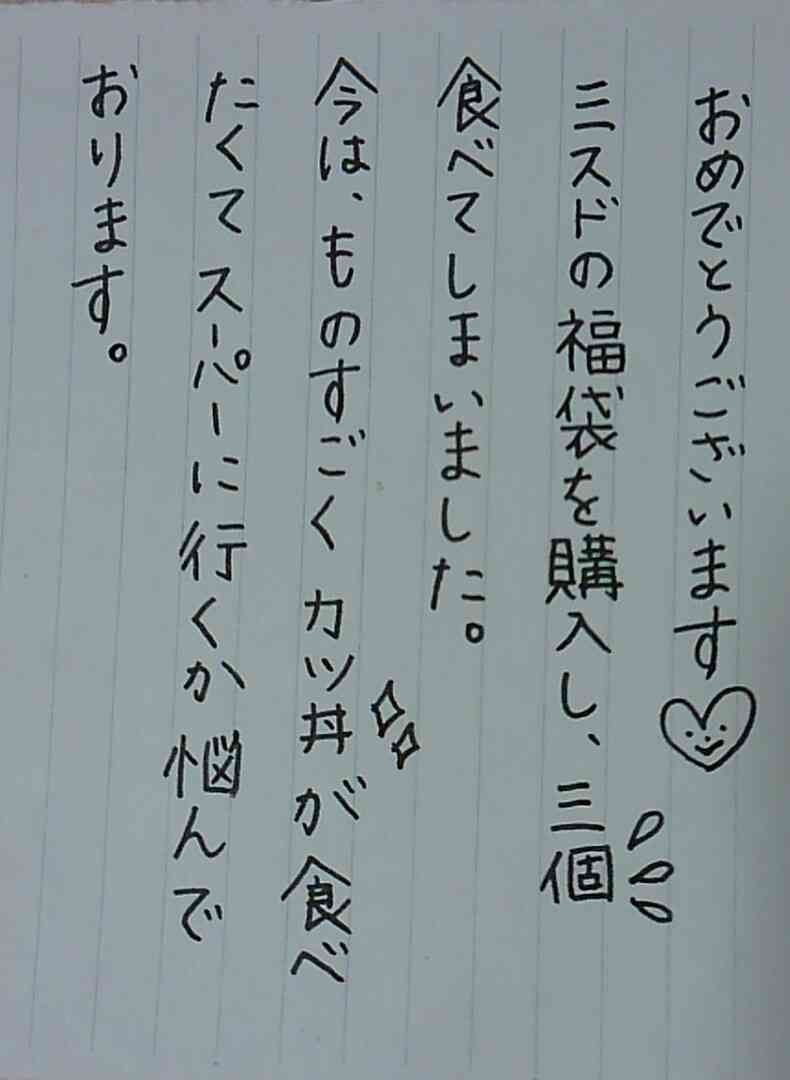 おめでとうございます
ミスドの福袋を購入し、三個
食べてしまいました。
今は、ものすごくカツ丼が食べ
たくてスーパーに行くか悩んで
おります。